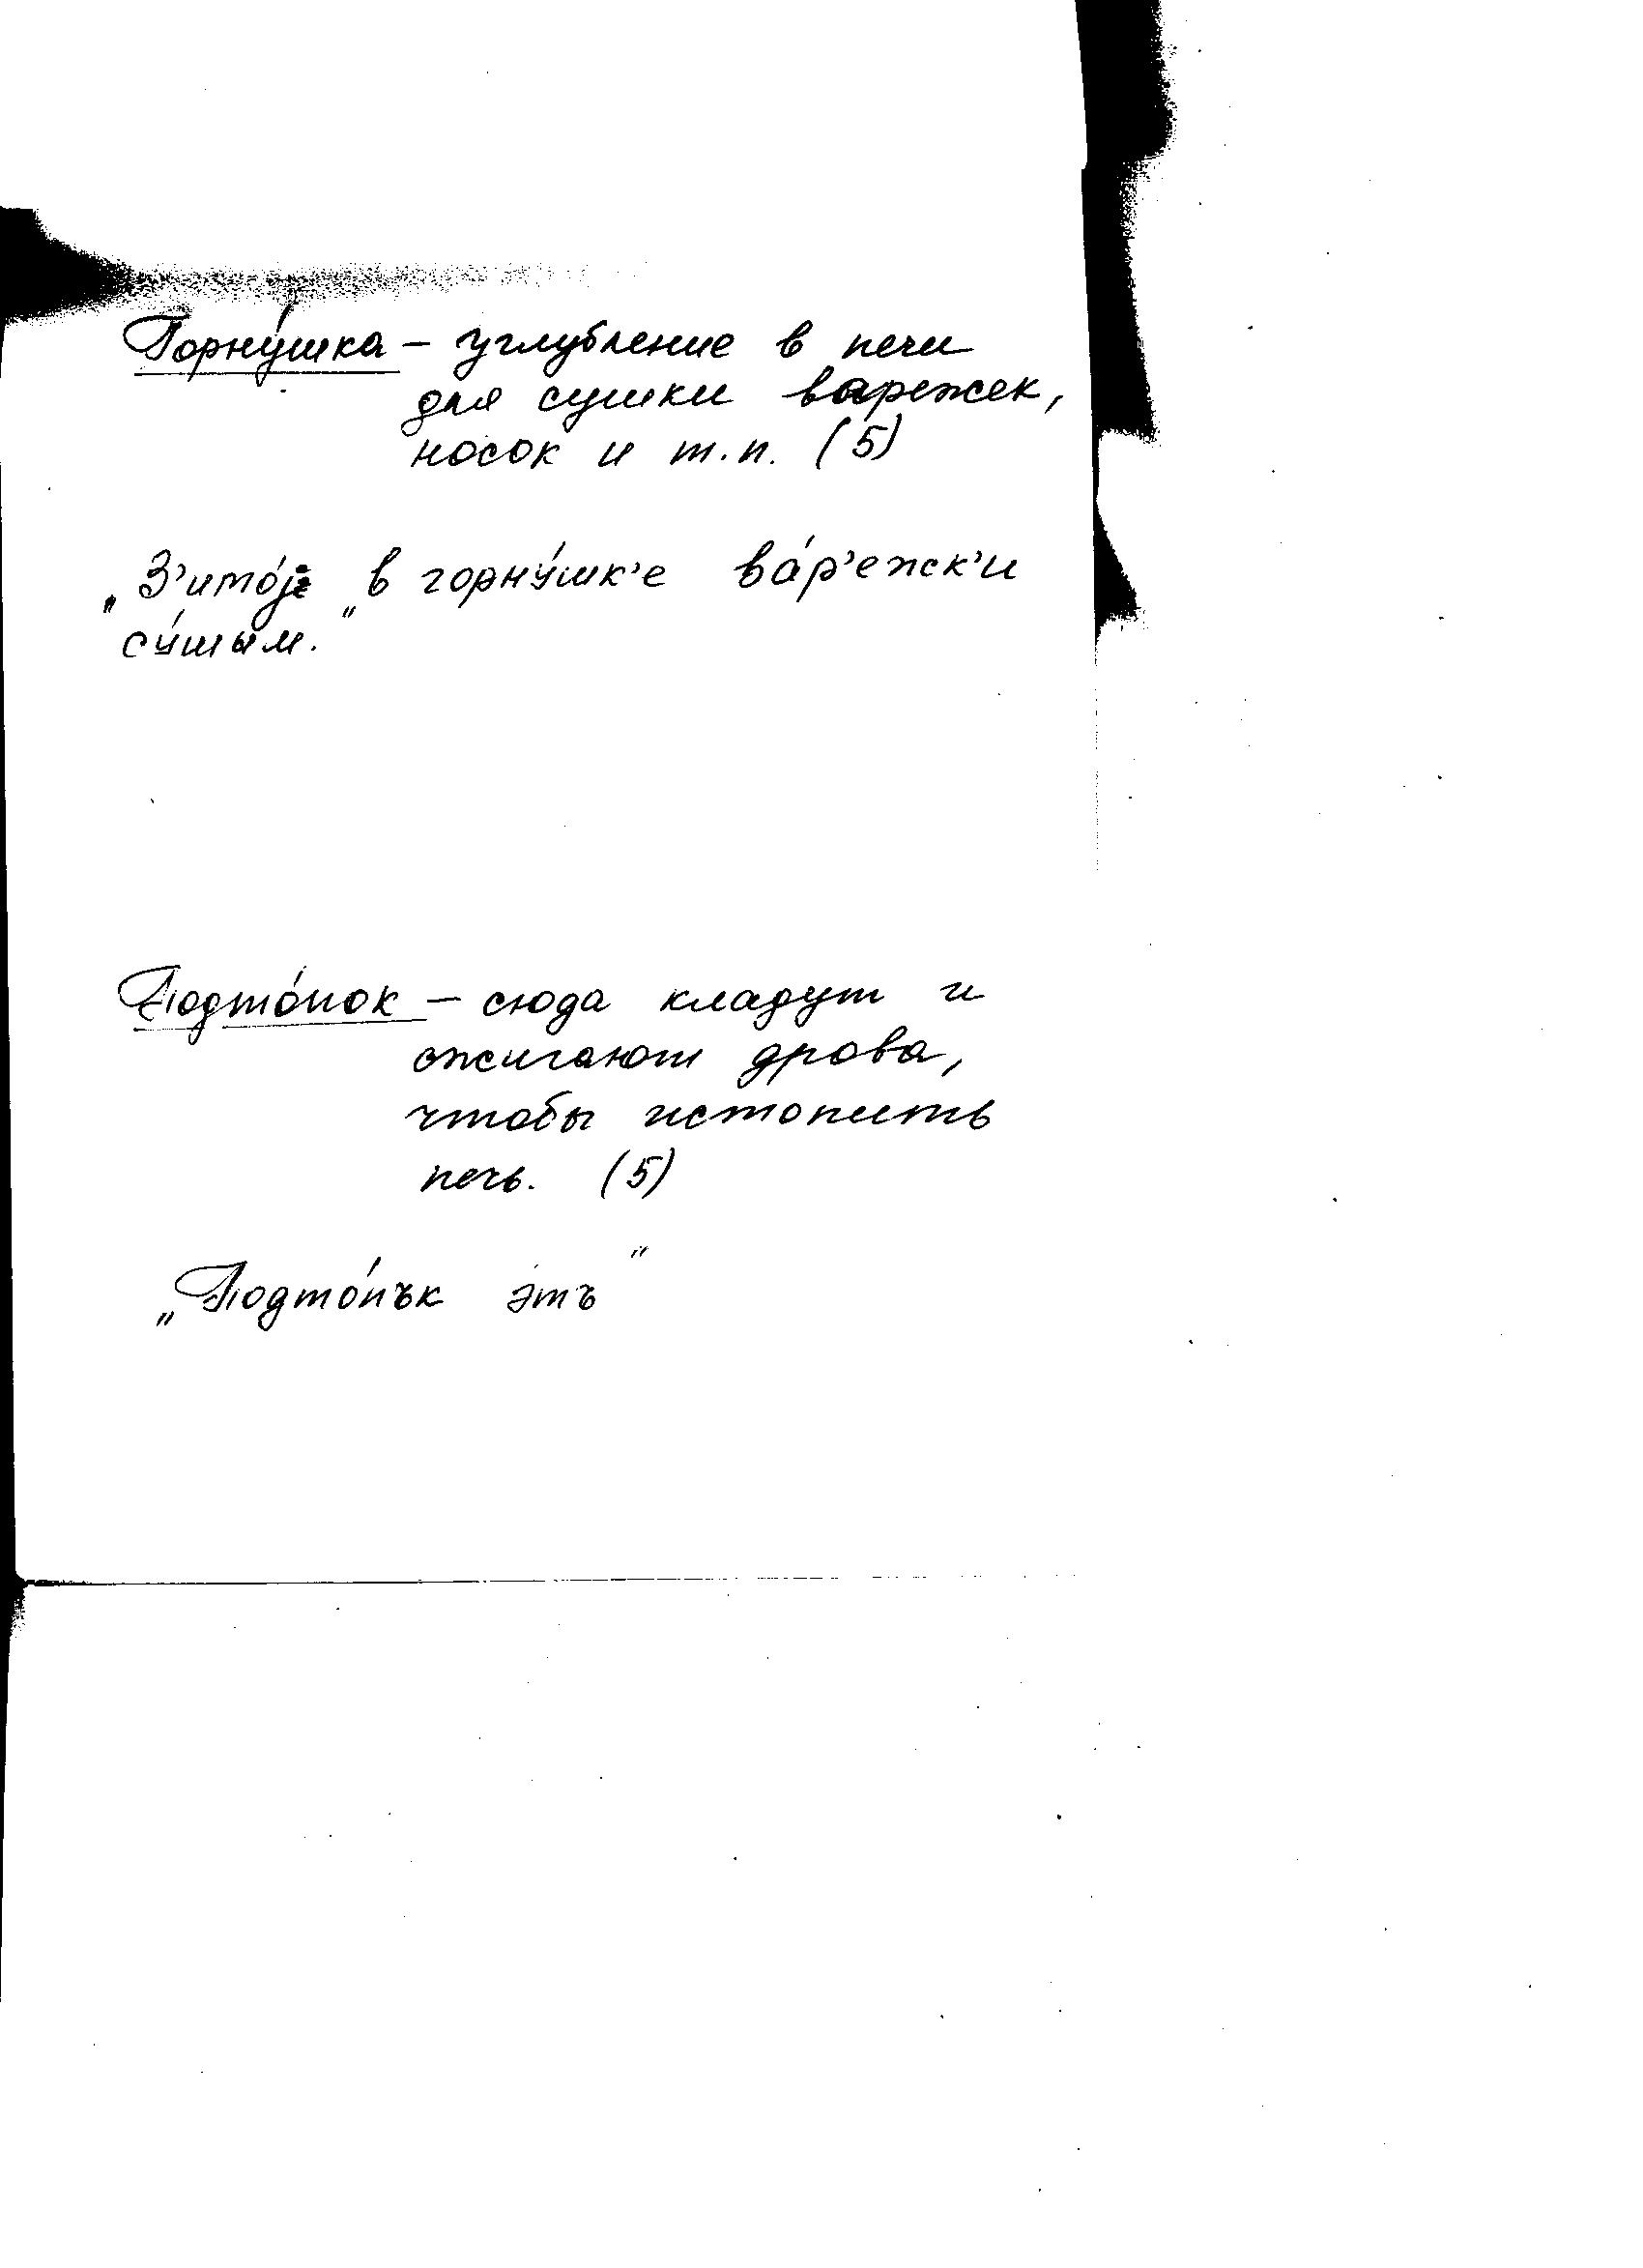 Горну́шка – углубление в печи
для сушки варежек,
носок и т.п. (5)
„З'имо́j в горну́шк'е ва́р'ежск'и
су́шым."
Подто́пок – сюда кладут и
сжигают дрова,
чтобы истопить
печь. (5)
„Подто́пък э́тъ"